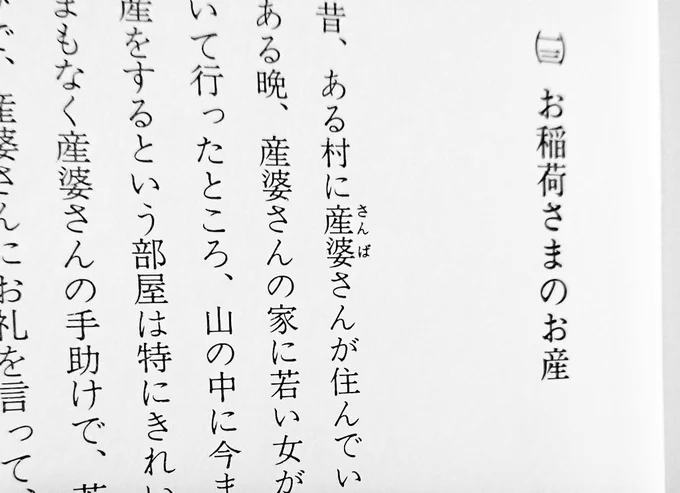 ㈢ お稲荷さまのお産
昔、ある村に産婆さんが住んでい
ある晩、産婆さんの家に若い女が
いて行ったところ、山の中に今ま
産をするという部屋は特にきれい
まもなく産婆さんの手助けで、
で、産婆さんにお礼を言って、